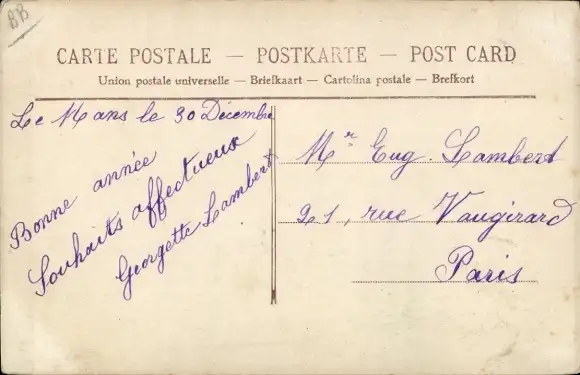 BB
CARTE POSTALE — POSTKARTE — POST CARD
Union postale universelle — Briefkaart — Cartolina postale — Brefkort
Le Mans le 30 Décembre
Bonne année
Souhaits affectueux
Georgette Lambert
Mr Eug. Lambert
21, rue Vaugirard
Paris